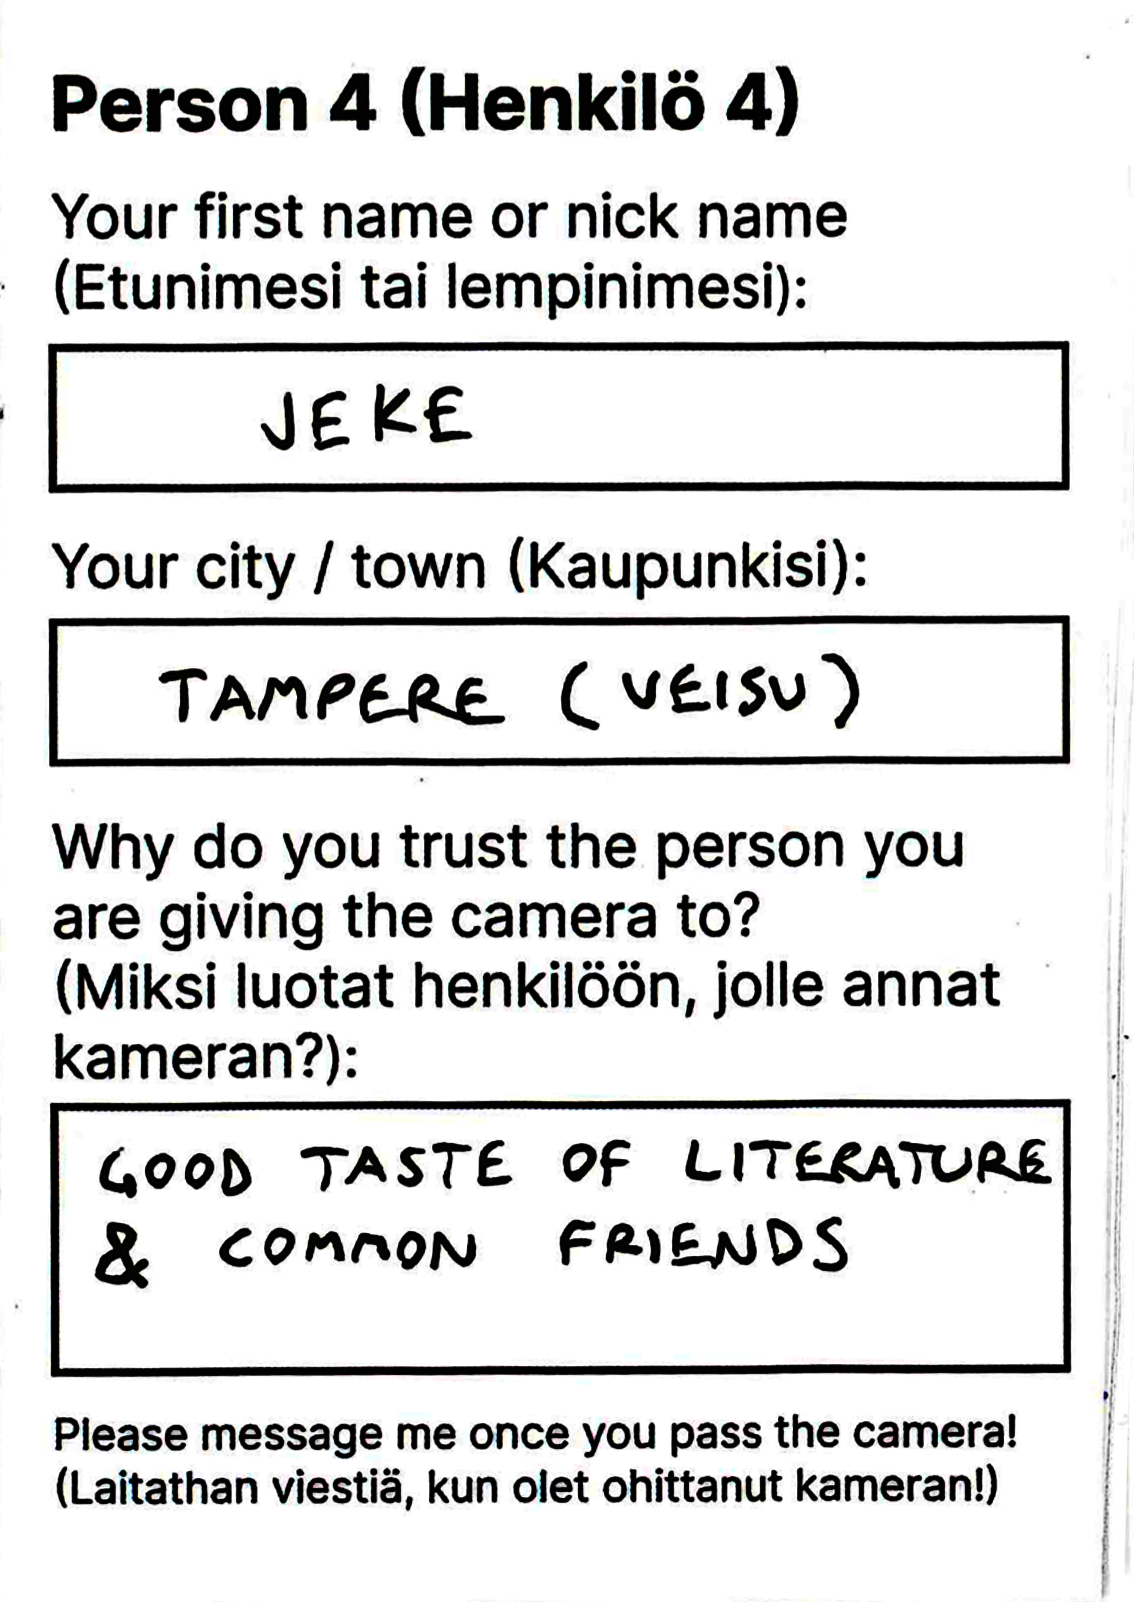 Person 4 (Henkilö 4)
Your first name or nick name
(Etunimesi tai lempinimesi):
JEKE
Your city / town (Kaupunkisi):
TAMPERE (VEISU)
Why do you trust the person you
are giving the camera to?
(Miksi luotat henkilöön, jolle annat
kameran?):
GOOD TASTE OF LITERATURE
& COMMON FRIENDS
Please message me once you pass the camera!
(Laitathan viestiä, kun olet ohittanut kameran!)